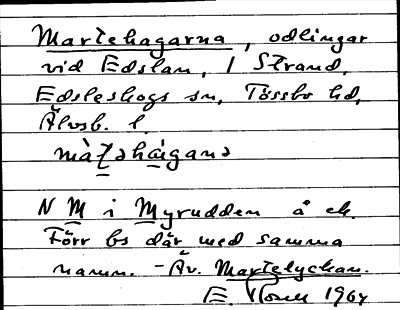 Martehagarna, odlingar
vid Edslan, 1 Strand,
Edsleskogs sn, Tössbo hd,
Älvsb. l.
màʈəhàganə
N M i Myrudden å ek.
Förr bs där med samma
namn. - Äv. Martelyckan.
E. 1964